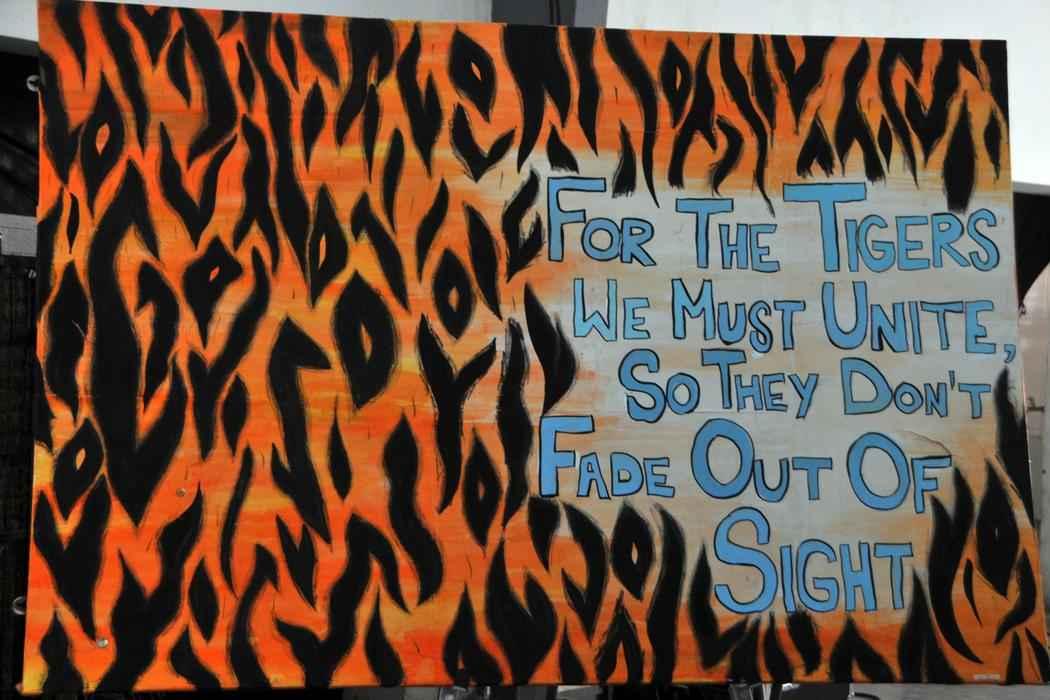 FOR THE TIGERS
WE MUST UNITE,
SO THEY DON'T
FADE OUT OF
SIGHT